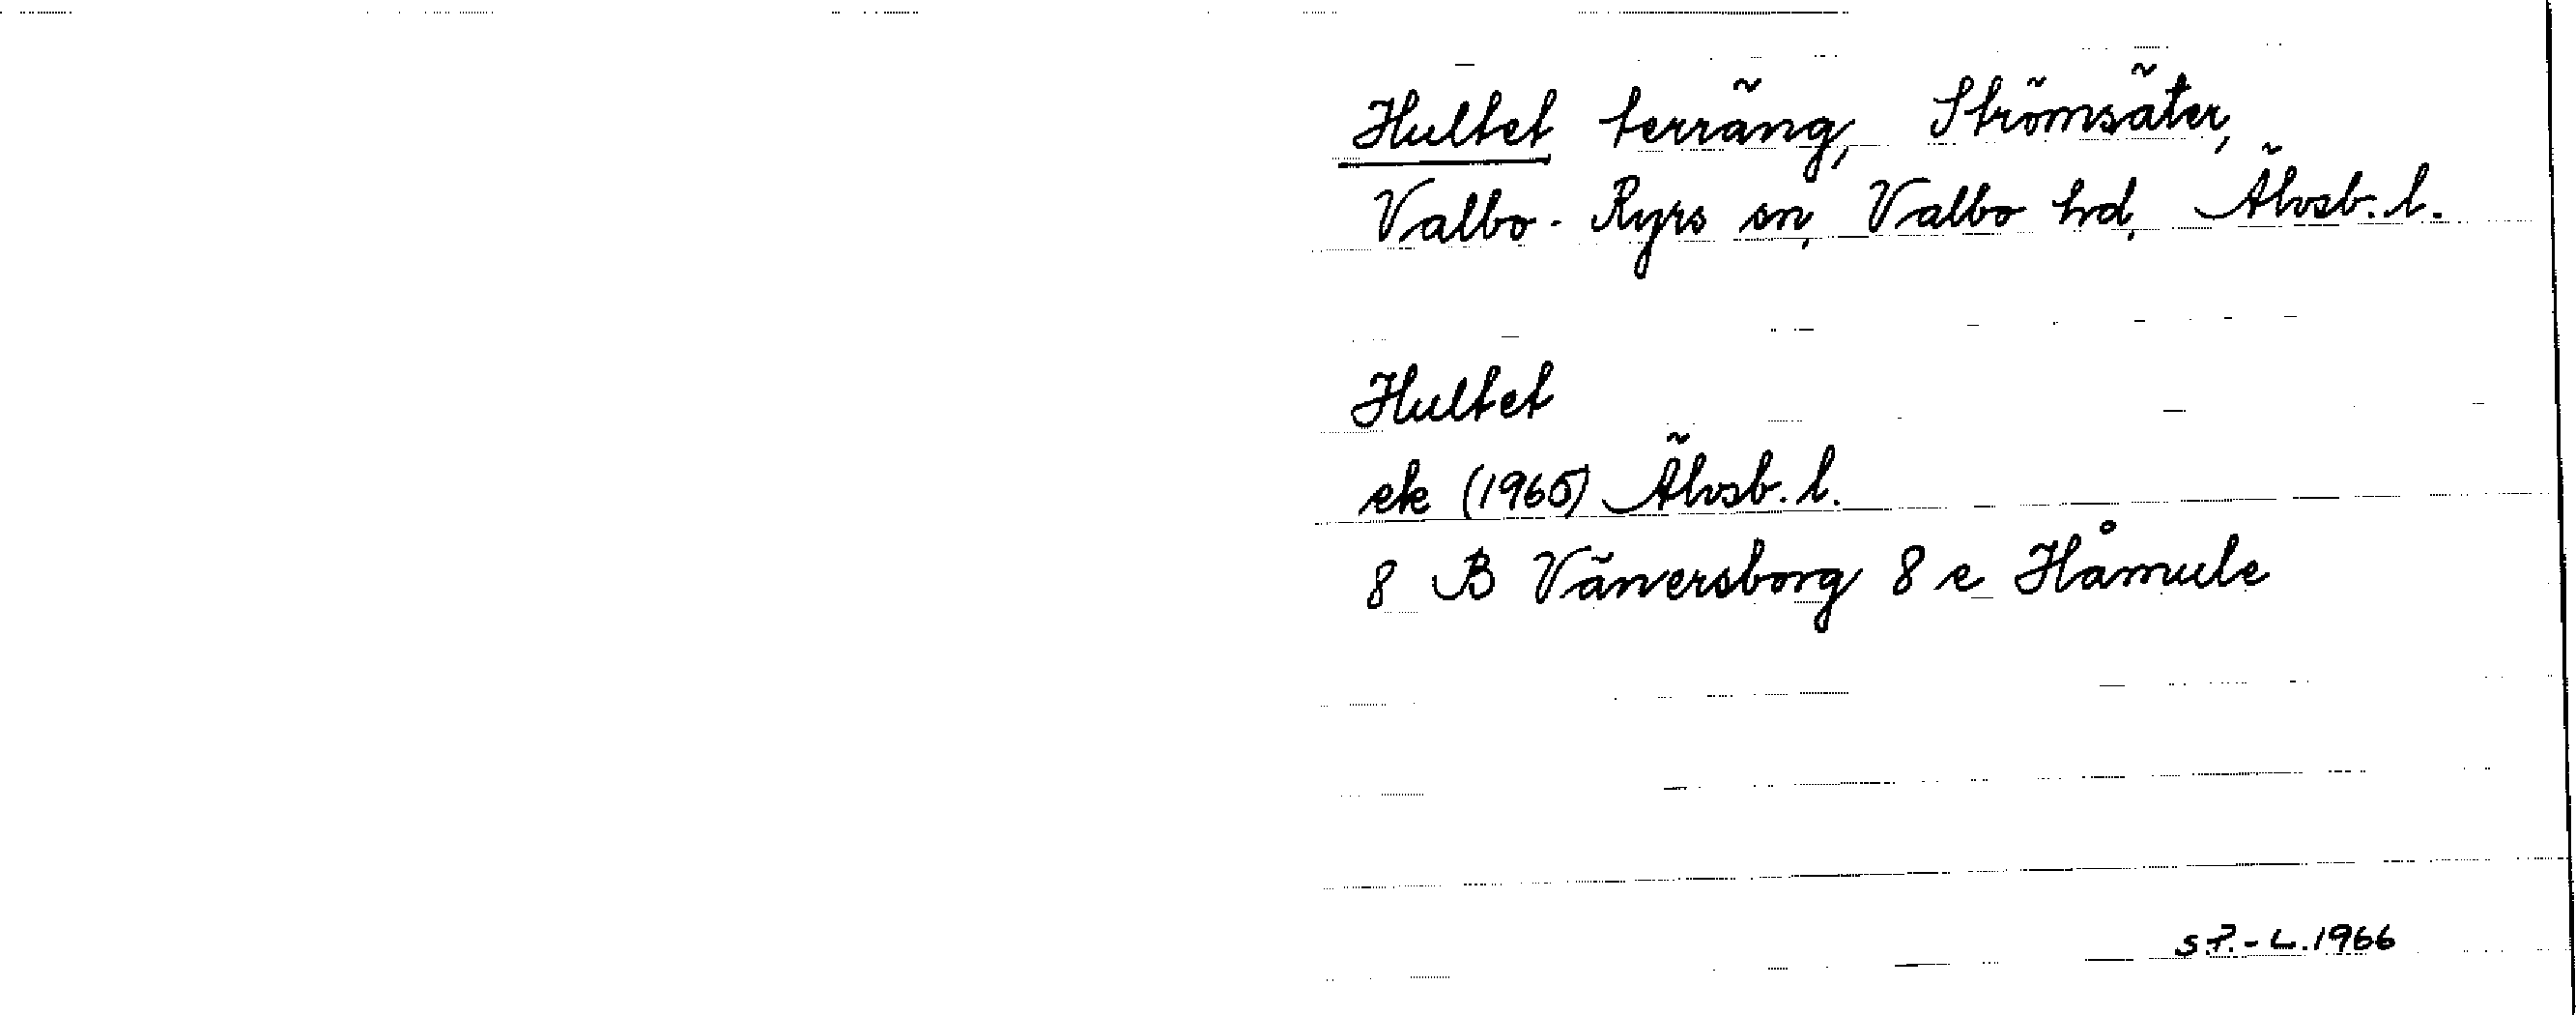 Hultet terräng, Strömsäter,
Valbo-Ryrs sn, Valbo hd, Älvsb. l.
Hultet
ek (1965) Älvsb. l.
8 B Vänersborg 8 e Håmule
S.P.-L. 1966